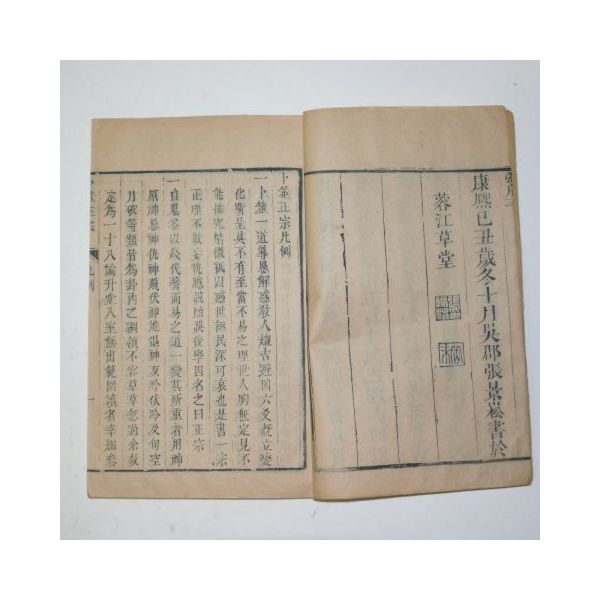 康熙己丑歲冬十月吳郡張景崧書於
蓉江草堂
卜筮正宗凡例
一卜筮一道導愚解惑教人趨吉避凶六爻既立變
化斯呈莫不有至當不易之理世人胸無定見不
能推究精微以惑世誣民深可哀也是書一宗
正理不敢妄執臆說貽誤後學因名之曰正宗
一自鬼谷以錢代蓍而易之道一變其所重者用神
原神忌神仇神飛伏神進退神反吟伏吟及旬空
月破等類皆為卦內之綱領不容草草忽過余故
定為一十八論升堂入室無出範圍讀者幸細參